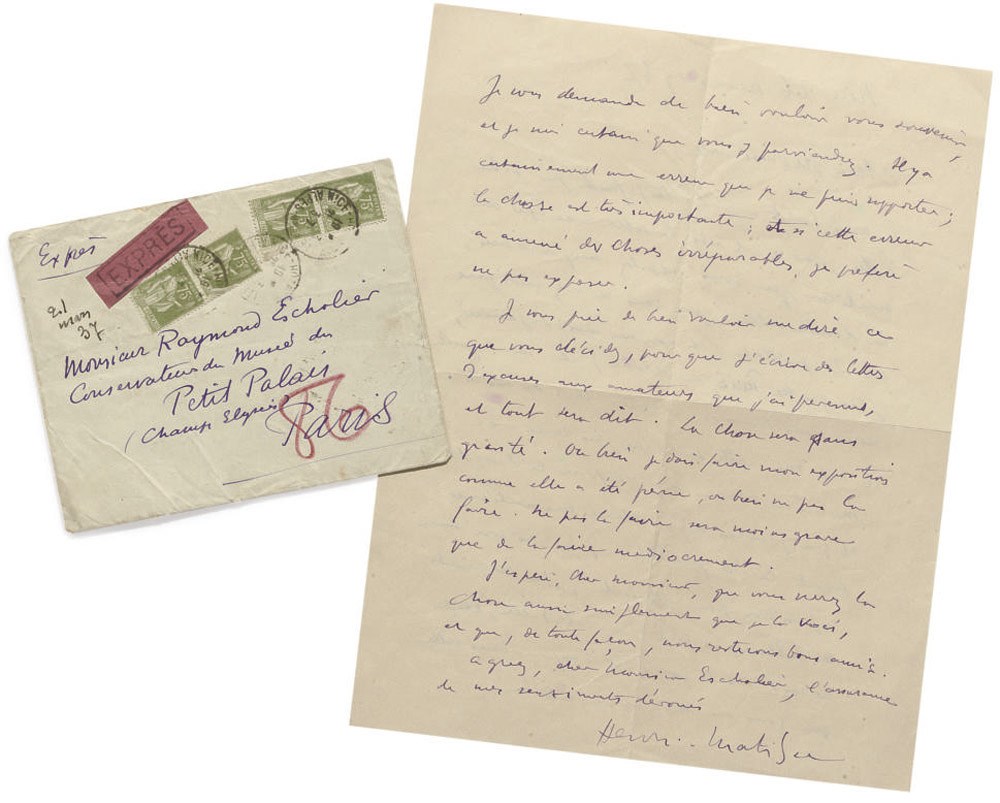 Exprès
EXPRÈS
75
75
75
75
NICE
mars
37
Monsieur Raymond Escholier
Conservateur du Musée du
Petit Palais
(Champs Elysées)
Paris
Je vous demande de bien vouloir vous souvenir,
et je suis certain que vous y parviendrez. Il y a
certainement une erreur que je ne puis supporter;
la chose est très importante; si cette erreur
a amené des choses irréparables, je préfère
ne pas exposer.
Je vous prie de bien vouloir me dire ce
que vous décidez, pour que j'écrive des lettres
d'excuses aux amateurs que j'ai prévenus,
et tout sera dit. La chose sera sans
gravité. Ou bien je dois faire mon exposition
comme elle a été prévue, ou bien ne pas la
faire. Ne pas la faire sera moins grave
que de la faire mediocrement.
J'espère, cher monsieur, que vous verrez la
chose aussi simplement que je la vois,
et que, de toute façon, nous resterons bons amis.
Agréez, cher Monsieur Escholier, l'assurance
de mes sentiments dévoués
Henri-Matisse